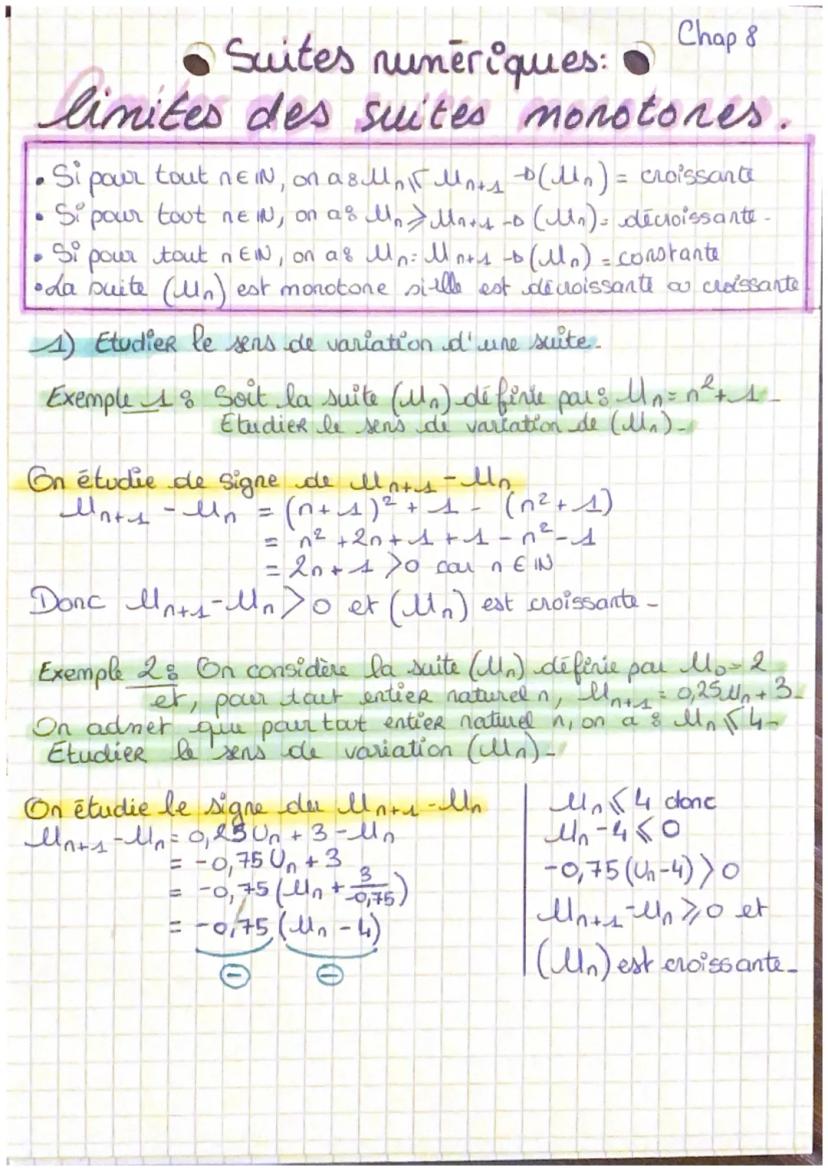 Chap 8
Suites numériques:
limites des suites monotones.
• Si pour tout n ∈ ℕ, on a : Un ⩽ Un+1 → (Un) = croissante
• Si pour tout n ∈ ℕ, on a : Un ⩾ Un+1 → (Un) = décroissante.
• Si pour tout n ∈ ℕ, on a : Un = Un+1 → (Un) = constante
• La suite (Un) est monotone si elle est décroissante ou croissante
1) Etudier le sens de variation d'une suite.
Exemple 1 : Soit la suite (Un) définie par : Un = n² + 1.
Etudier le sens de variation de (Un).
On étudie de signe de Un+1 - Un
Un+1 - Un = (n+1)² + 1 - (n² + 1)
= n² + 2n + 1 + 1 - n² - 1
= 2n + 1 > 0 car n ∈ ℕ
Donc Un+1 - Un > 0 et (Un) est croissante.
Exemple 2 : On considère la suite (Un) définie par U0 = 2
et, pour tout entier naturel n, Un+1 = 0,25Un + 3.
On admet que pour tout entier naturel n, on a : Un ⩽ 4.
Etudier le sens de variation (Un).
On étudie le signe du Un+1 - Un
Un+1 - Un = 0,25Un + 3 - Un
= -0,75 Un + 3
= -0,75 (Un + 3/-0,75)
= -0,75 (Un - 4)
⊖ ⊖
Un ⩽ 4 donc
Un - 4 ⩽ 0
-0,75 (Un - 4) > 0
Un+1 - Un ⩾ 0 et
(Un) est croissante.